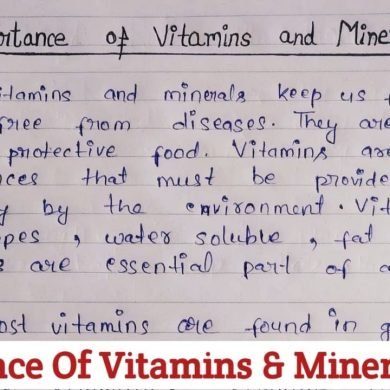 ortance of Vitamins and Miner
itamins and minerals keep us f
free from diseases. They are
protective food. Vitamins are
nces that must be provide
y by the environment. Vit
pes, water soluble, fat
s are essential part of a
ost vitamins are found in g
nce Of Vitamins & Miner